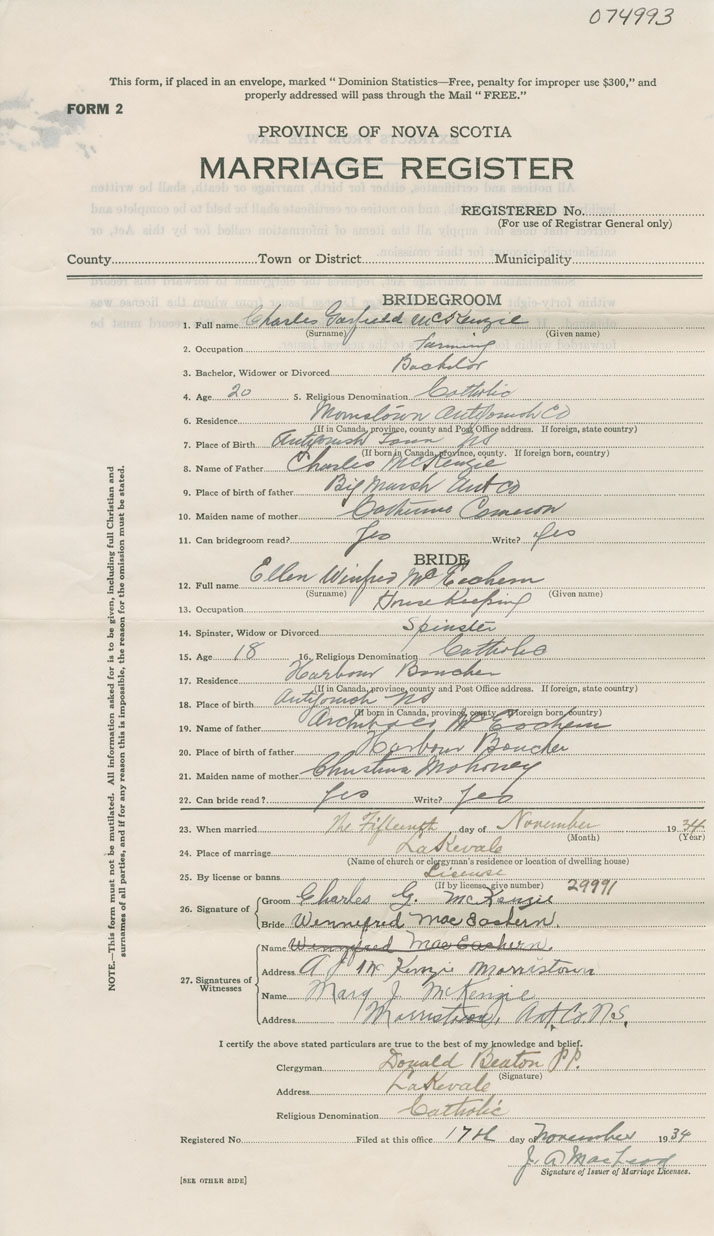 074993
This form, if placed in an envelope, marked "Dominion Statistics—Free, penalty for improper use $300," and
properly addressed will pass through the Mail "FREE."
FORM 2
PROVINCE OF NOVA SCOTIA
MARRIAGE REGISTER
REGISTERED No.
(For use of Registrar General only)
County Town or District Municipality
BRIDEGROOM
1. Full name Charles Garfield McKenzie
(Surname) (Given name)
2. Occupation farming
3. Bachelor, Widower or Divorced Bachelor
4. Age 20 5. Religious Denomination Catholic
6. Residence Morristown Antigonish Co
(If in Canada, province, county and Post Office address. If foreign, state country)
7. Place of Birth Antigonish Town NS
(If born in Canada, province, county. If foreign born, country)
8. Name of Father Charles McKenzie
9. Place of birth of father Big Marsh Ant Co
10. Maiden name of mother Catherine Cameron
11. Can bridegroom read? Yes Write? Yes
BRIDE
12. Full name Ellen Winifred McEachern
(Surname) (Given name)
13. Occupation Housekeeping
14. Spinster, Widow or Divorced Spinster
15. Age 18 16. Religious Denomination Catholic
17. Residence Harbour Boucher
(If in Canada, province, county and Post Office address. If foreign, state country)
18. Place of birth Antigonish NS
(If born in Canada, province, county. If foreign born, country)
19. Name of father Archibald McEachern
20. Place of birth of father Harbour Boucher
21. Maiden name of mother Christina Mahoney
22. Can bride read? Yes Write? Yes
23. When married The Fifteenth day of November 1934
(Month) (Year)
24. Place of marriage Lakevale
(Name of church or clergyman's residence or location of dwelling house)
25. By license or banns License
(If by license, give number) 29991
26. Signature of
Groom Charles G. McKenzie
Bride Winnefred MacEachern.
27. Signatures of Witnesses
Name Winnifred MacEachern.
Address A J McKenzie Morristown
Name Mary J. McKenzie
Address Morristown, Ant. Co. N.S.
I certify the above stated particulars are true to the best of my knowledge and belief.
Clergyman Donald Beaton P.P.
(Signature)
Address Lakevale
Religious Denomination Catholic
Registered No. Filed at this office 17th day of November 1934
J. A. MacLeod
Signature of Issuer of Marriage Licenses.
[SEE OTHER SIDE]
NOTE.—This form must not be mutilated. All information asked for is to be given, including full Christian and
surnames of all parties, and if for any reason this is impossible, the reason for the omission must be stated.